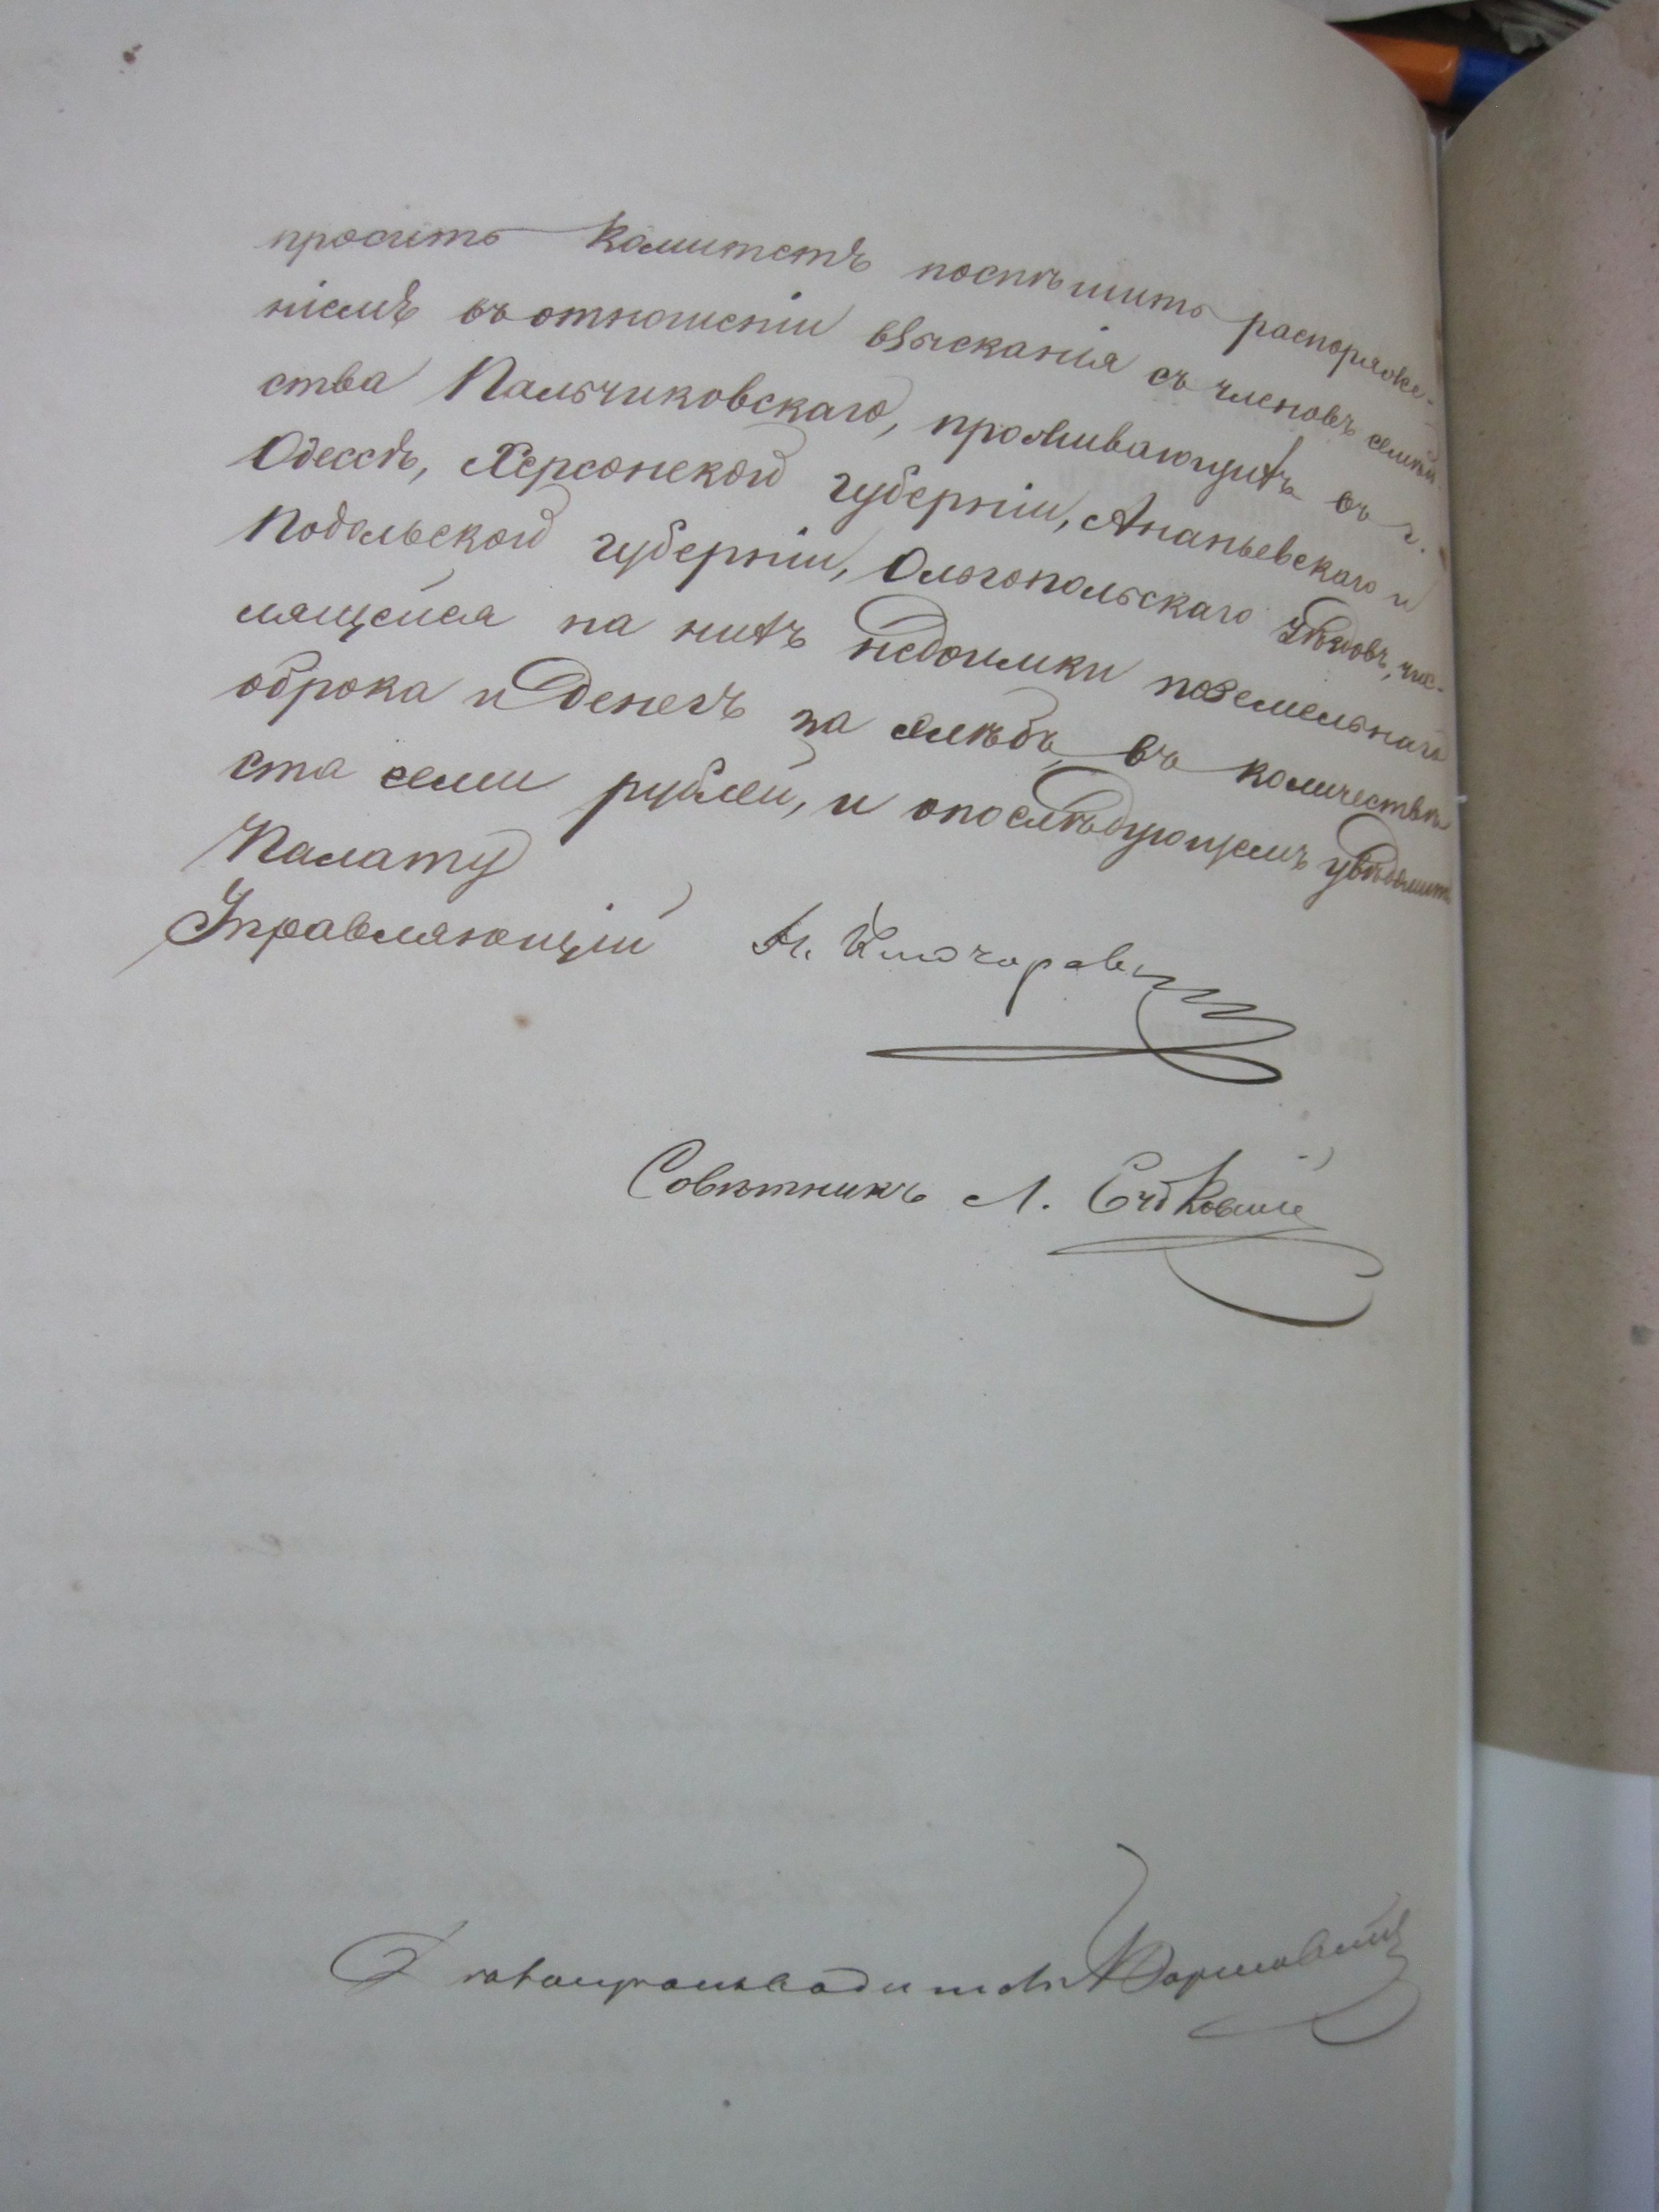 просить Комитетъ поспѣшить распоряже-
ніемъ въ отношеніи взысканія съ членовъ семей-
ства Пальчиковскаго, проживающихъ въ г.
Одессѣ, Херсонской губерніи, Ананьевскаго и
Подольской губерніи, Ольгопольскаго уѣздовъ, чис-
лящейся на нихъ недоимки поземельнаго
оброка и денегъ за хлѣбъ, въ количествѣ
ста семи рублей, и опослѣдующемъ увѣдомить
Палату
Управляющій Н. Ключаревъ
Совѣтникъ Л.
Дѣлопроизводитель